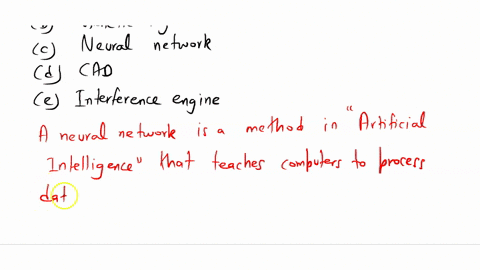 (c) Neural network
(d) CAD
(e) Interference engine
A neural network is a method in "Artificial
Intelligence" that teaches computers to process
dat